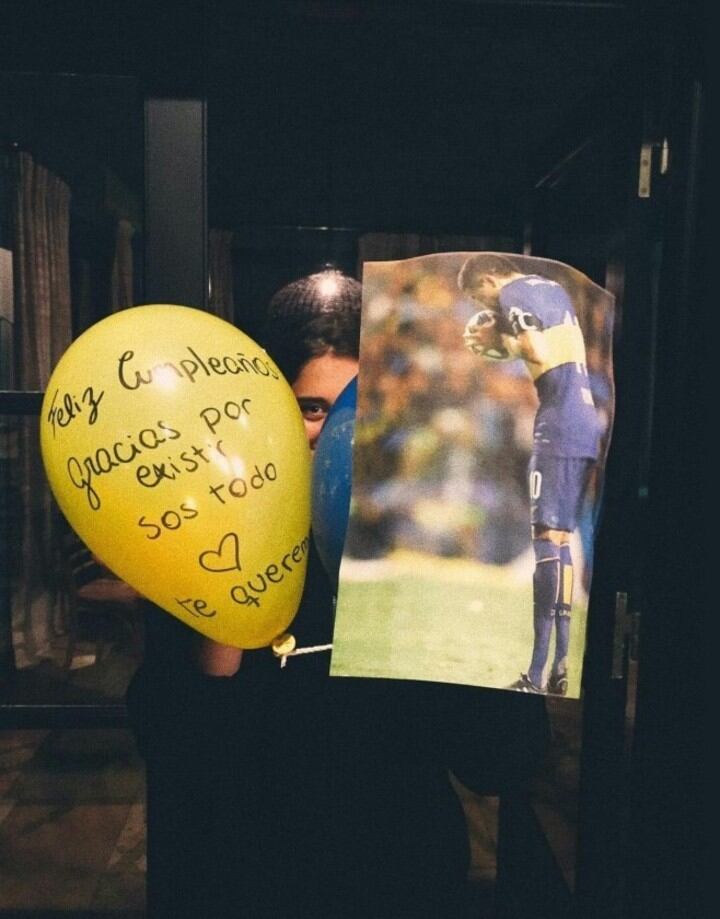 Feliz Cumpleaños
gracias por
existir
sos todo
te queremos
10